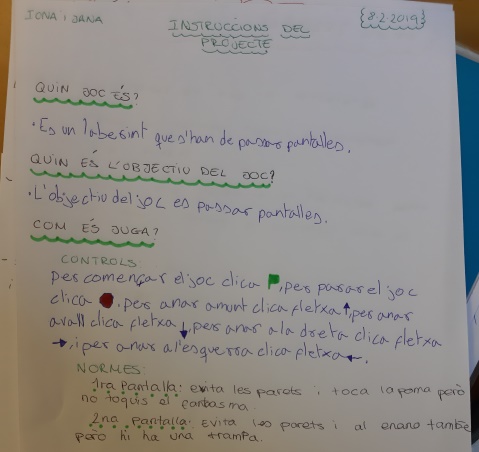 IONA i JANA
INSTRUCCIONS DEL
PROJECTE
{8.2.2019}
QUIN JOC ÉS?
· Es un laberint que s'han de passar pantalles.
QUIN ÉS L'OBJECTIU DEL JOC?
· L'objectiu del joc es passar pantalles.
COM ÉS JUGA?
CONTROLS
per començar el joc clica , per parar el joc
clica , per anar amunt clica fletxa ↑, per anar
avall clica fletxa ↓, per anar a la dreta clica fletxa
→, i per anar a l'esquerra clica fletxa ←.
NORMES:
1ra pantalla: evita les parets i toca la poma però
no toquis el fantasma.
2na pantalla: Evita les parets i al enano també
però hi ha una trampa.